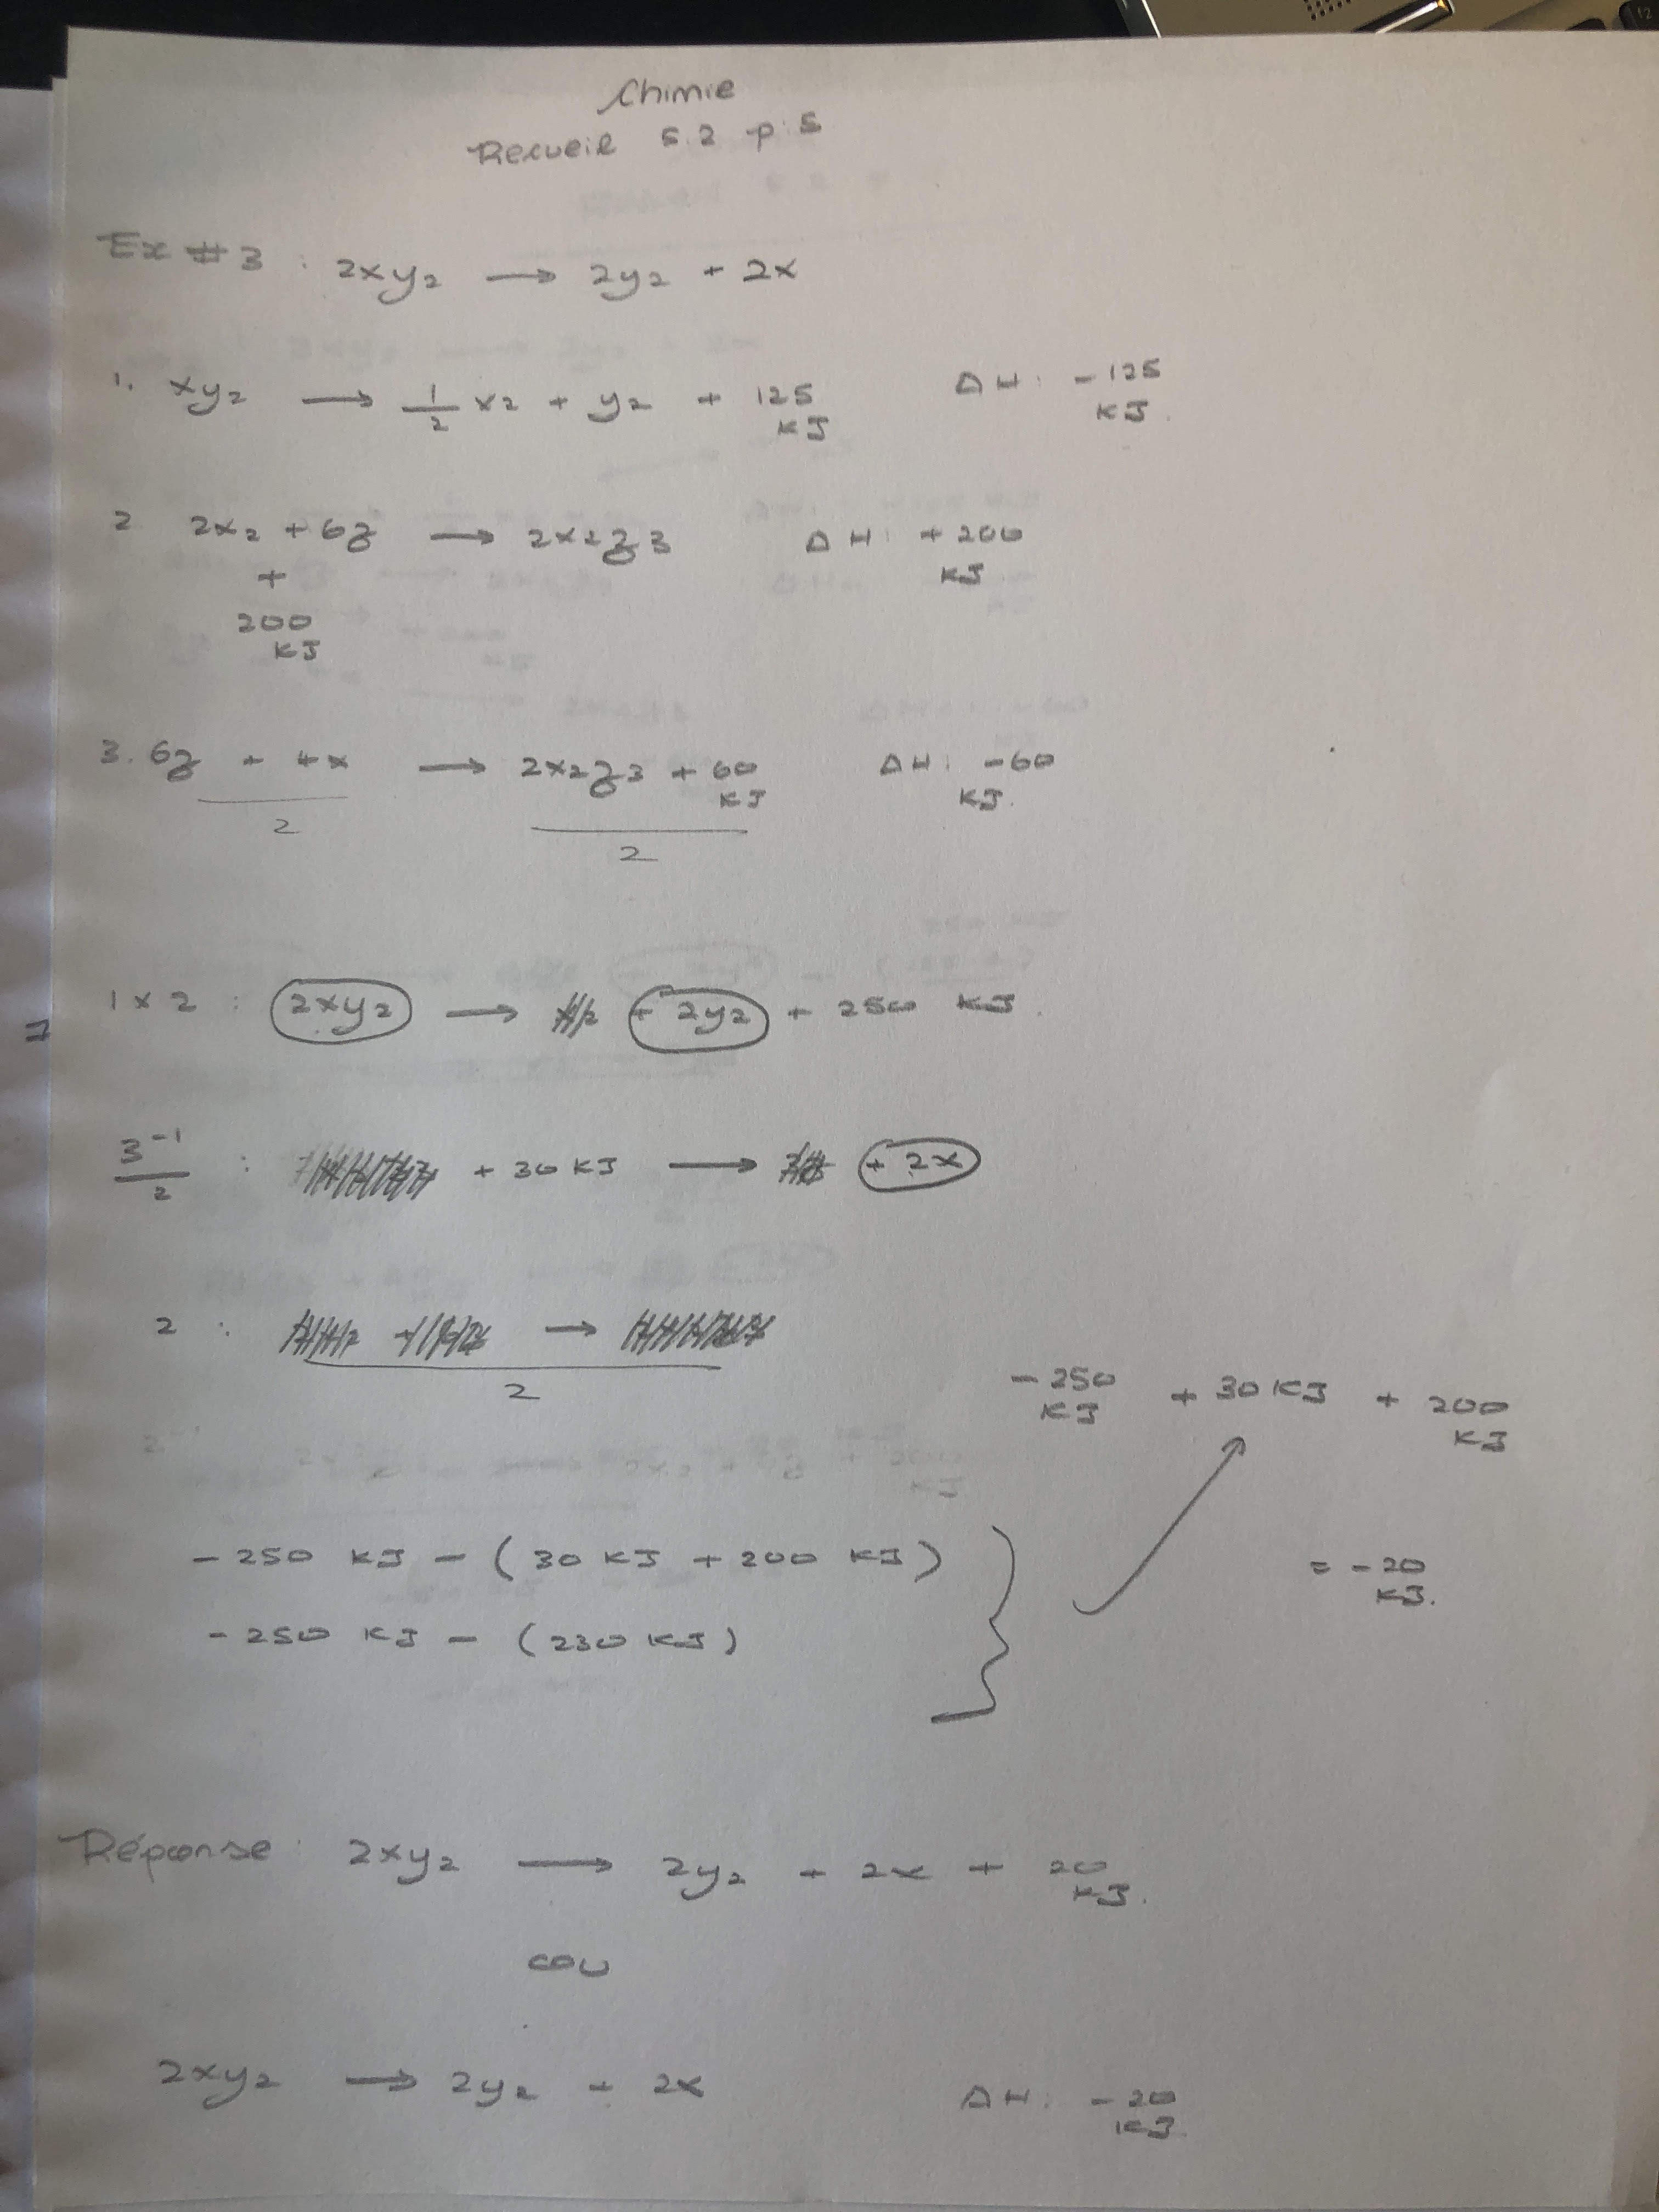 Chimie
Recueil 5.2 p.5
Ex #3 : 2xy2 → 2y2 + 2x
1. xy2 → 1/2 x2 + y2 + 125 KJ ΔH: -125 KJ.
2 2x2 + 6z + 200 KJ → 2x2z3 ΔH: +200 KJ
3. 6z + 4x / 2 → 2x2z3 + 60 KJ / 2 ΔH: -60 KJ.
1 x 2 : 2xy2 → + 2y2 + 250 KJ.
3^-1 / 2 : + 30 KJ → + 2x
2 : → / 2
-250 KJ + 30 KJ + 200 KJ
-250 KJ - (30 KJ + 200 KJ)
= -20 KJ.
-250 KJ - (230 KJ)
Réponse : 2xy2 → 2y2 + 2x + 20 KJ.
ou
2xy2 → 2y2 + 2x ΔH: -20 KJ